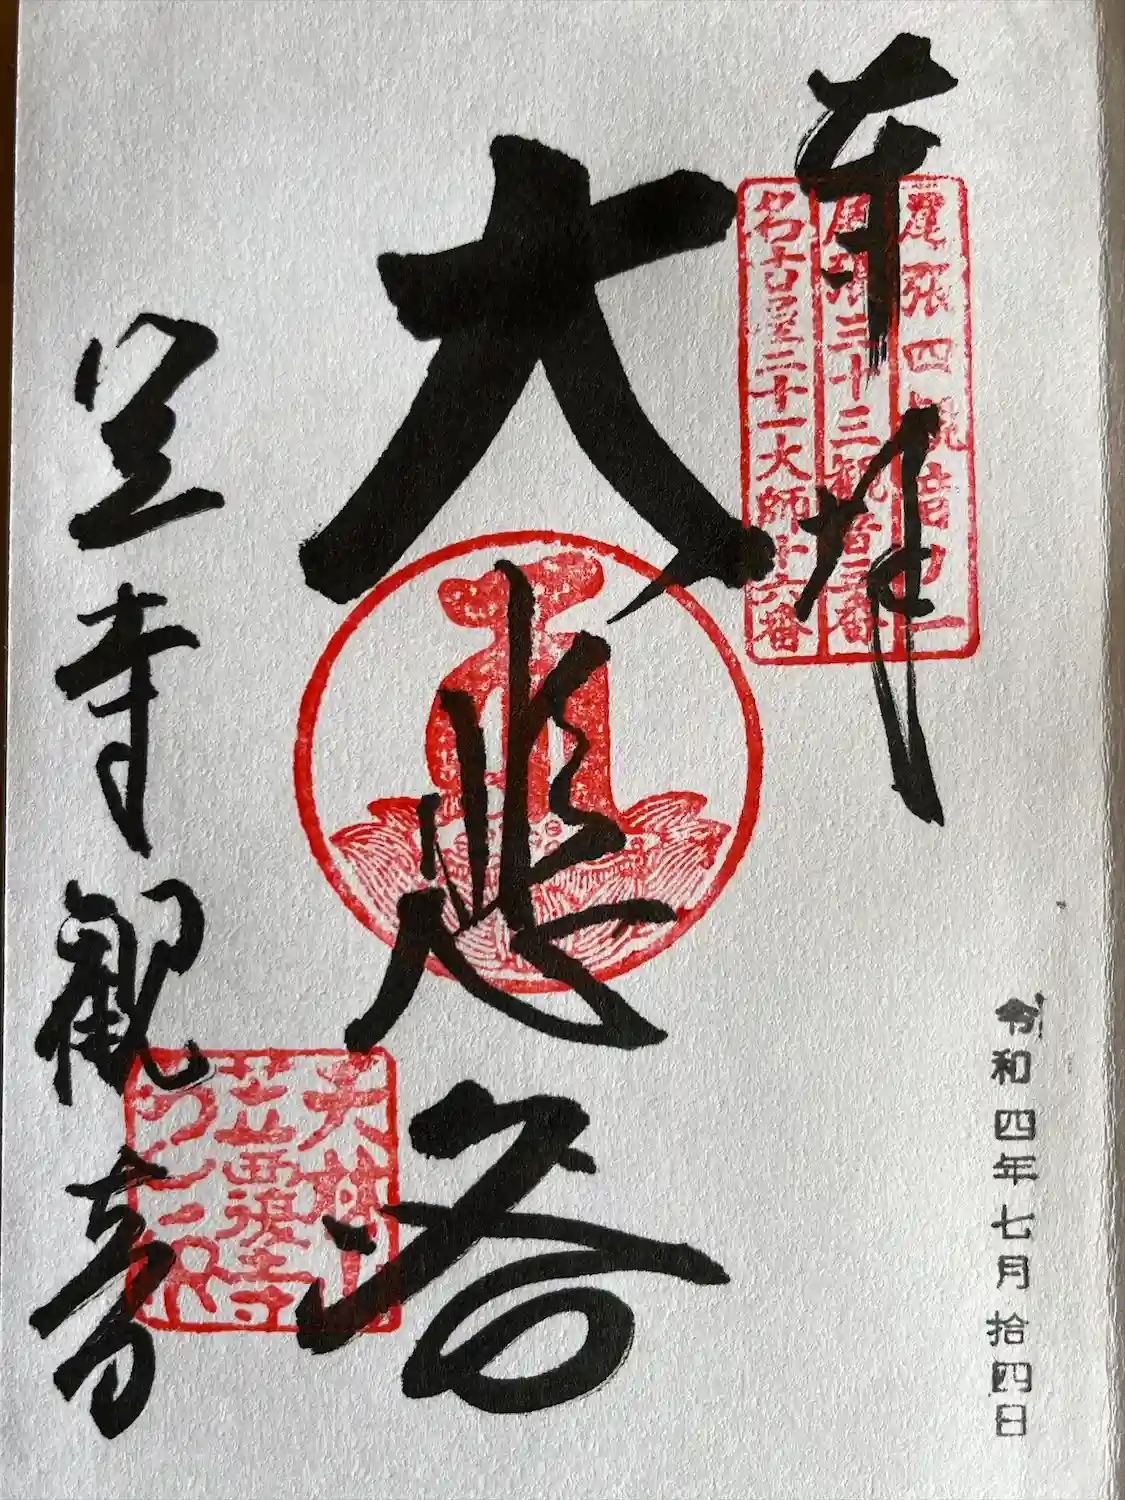 令和四年七月拾四日
奉拝
尾張四観音
尾張三十三観音三番
名古屋二十一大師十六番
大悲
笠寺観音
天林山
笠覆寺